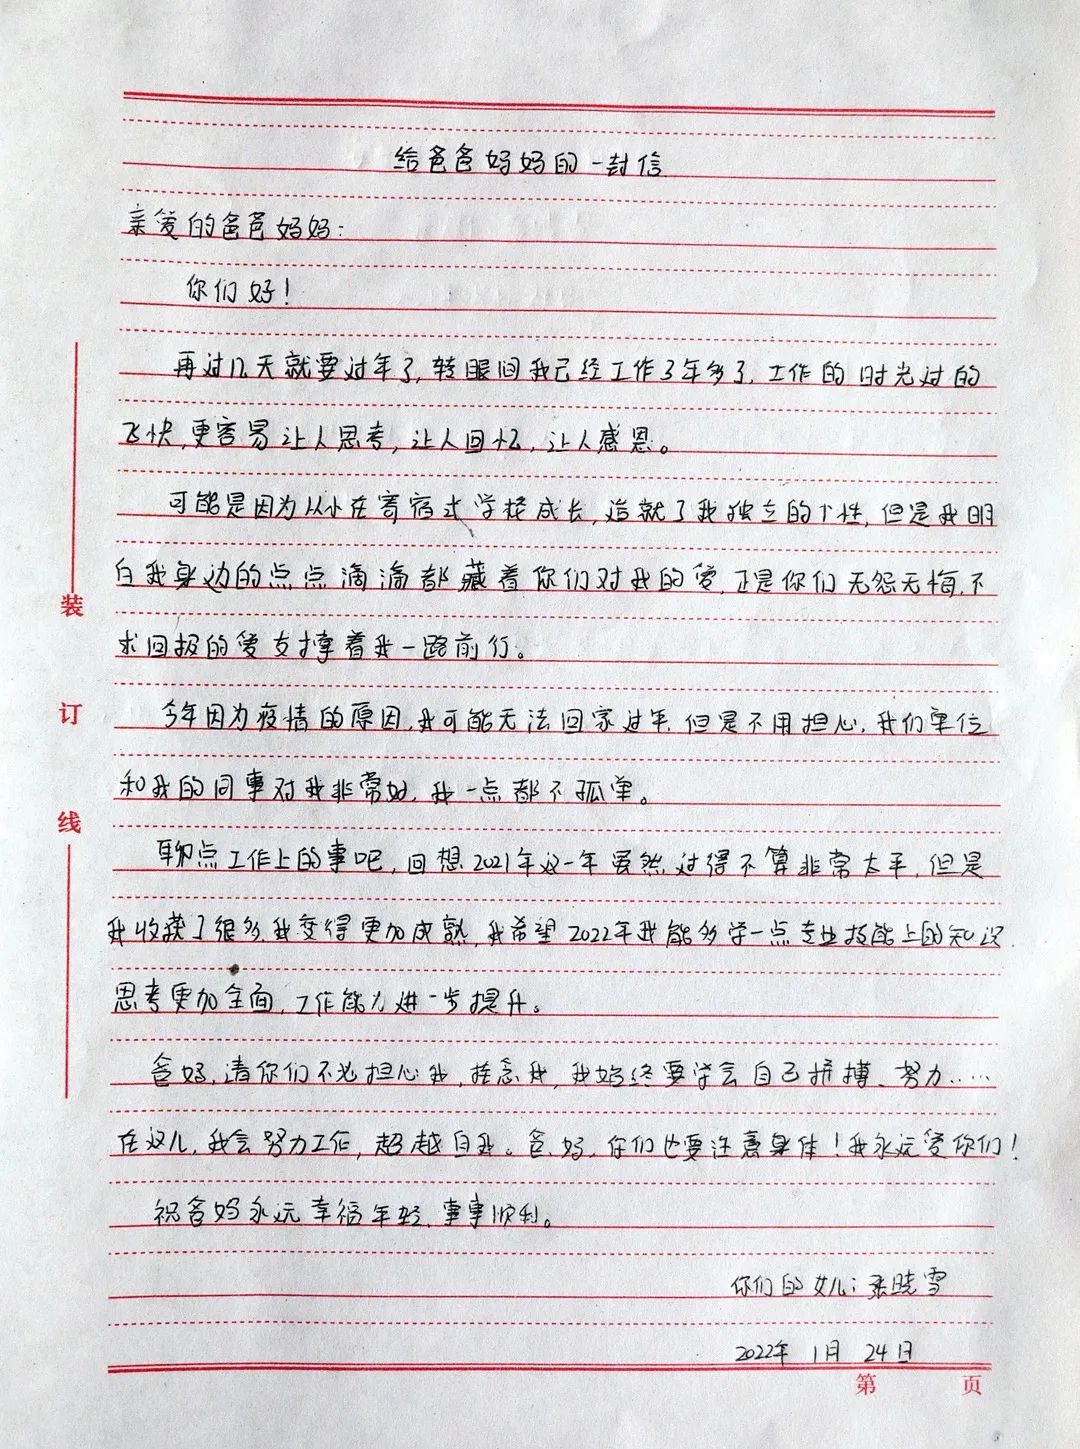 给爸爸妈妈的一封信
亲爱的爸爸妈妈：
你们好！
再过几天就要过年了，转眼间我已经工作3年多了，工作的时光过的
飞快，更容易让人思考，让人回忆，让人感恩。
可能是因为从小在寄宿式学校成长，造就了我独立的个性，但是我明
白我身边的点点滴滴都藏着你们对我的爱，正是你们无怨无悔，不
求回报的爱支撑着我一路前行。
今年因为疫情的原因，我可能无法回家过年，但是不用担心，我们单位
和我的同事对我非常好，我一点都不孤单。
聊点工作上的事吧，回想2021年这一年虽然过得不算非常太平，但是
我收获了很多，我变得更加成熟，我希望2022年我能多学一点专业技能上的知识，
思考更加全面，工作能力进一步提升。
爸妈，请你们不必担心我，挂念我，我始终要学会自己拼搏、努力……
在这儿，我会努力工作，超越自我。爸、妈，你们也要注意身体！我永远爱你们！
祝爸妈永远幸福年轻，事事顺利。
你们的女儿：张晓雪
2022年 1月 24日
装
订
线
第 页